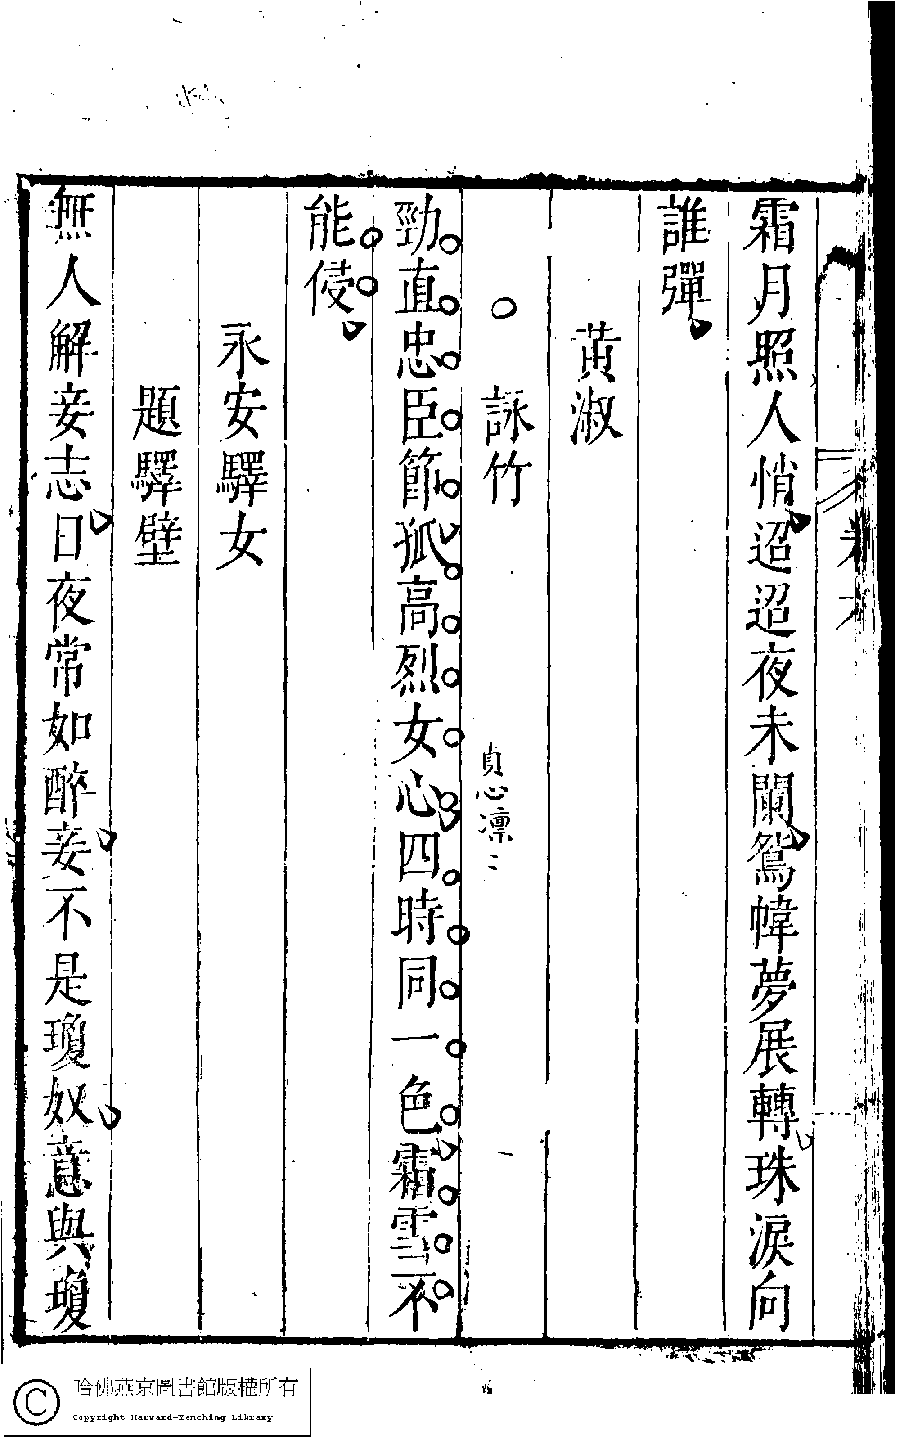 霜月照人悄迢迢夜未闌鴛幃夢展轉珠淚向
誰彈
黃淑
詠竹
貞心凛〻
勁直忠臣節孤高烈女心四時同一色霜雪不
能侵
永安驛女
題驛壁
無人解妾志日夜常如醉妾不是瓊奴意與瓊
哈佛燕京圖書館版權所有
Copyright Harvard-Yenching Library